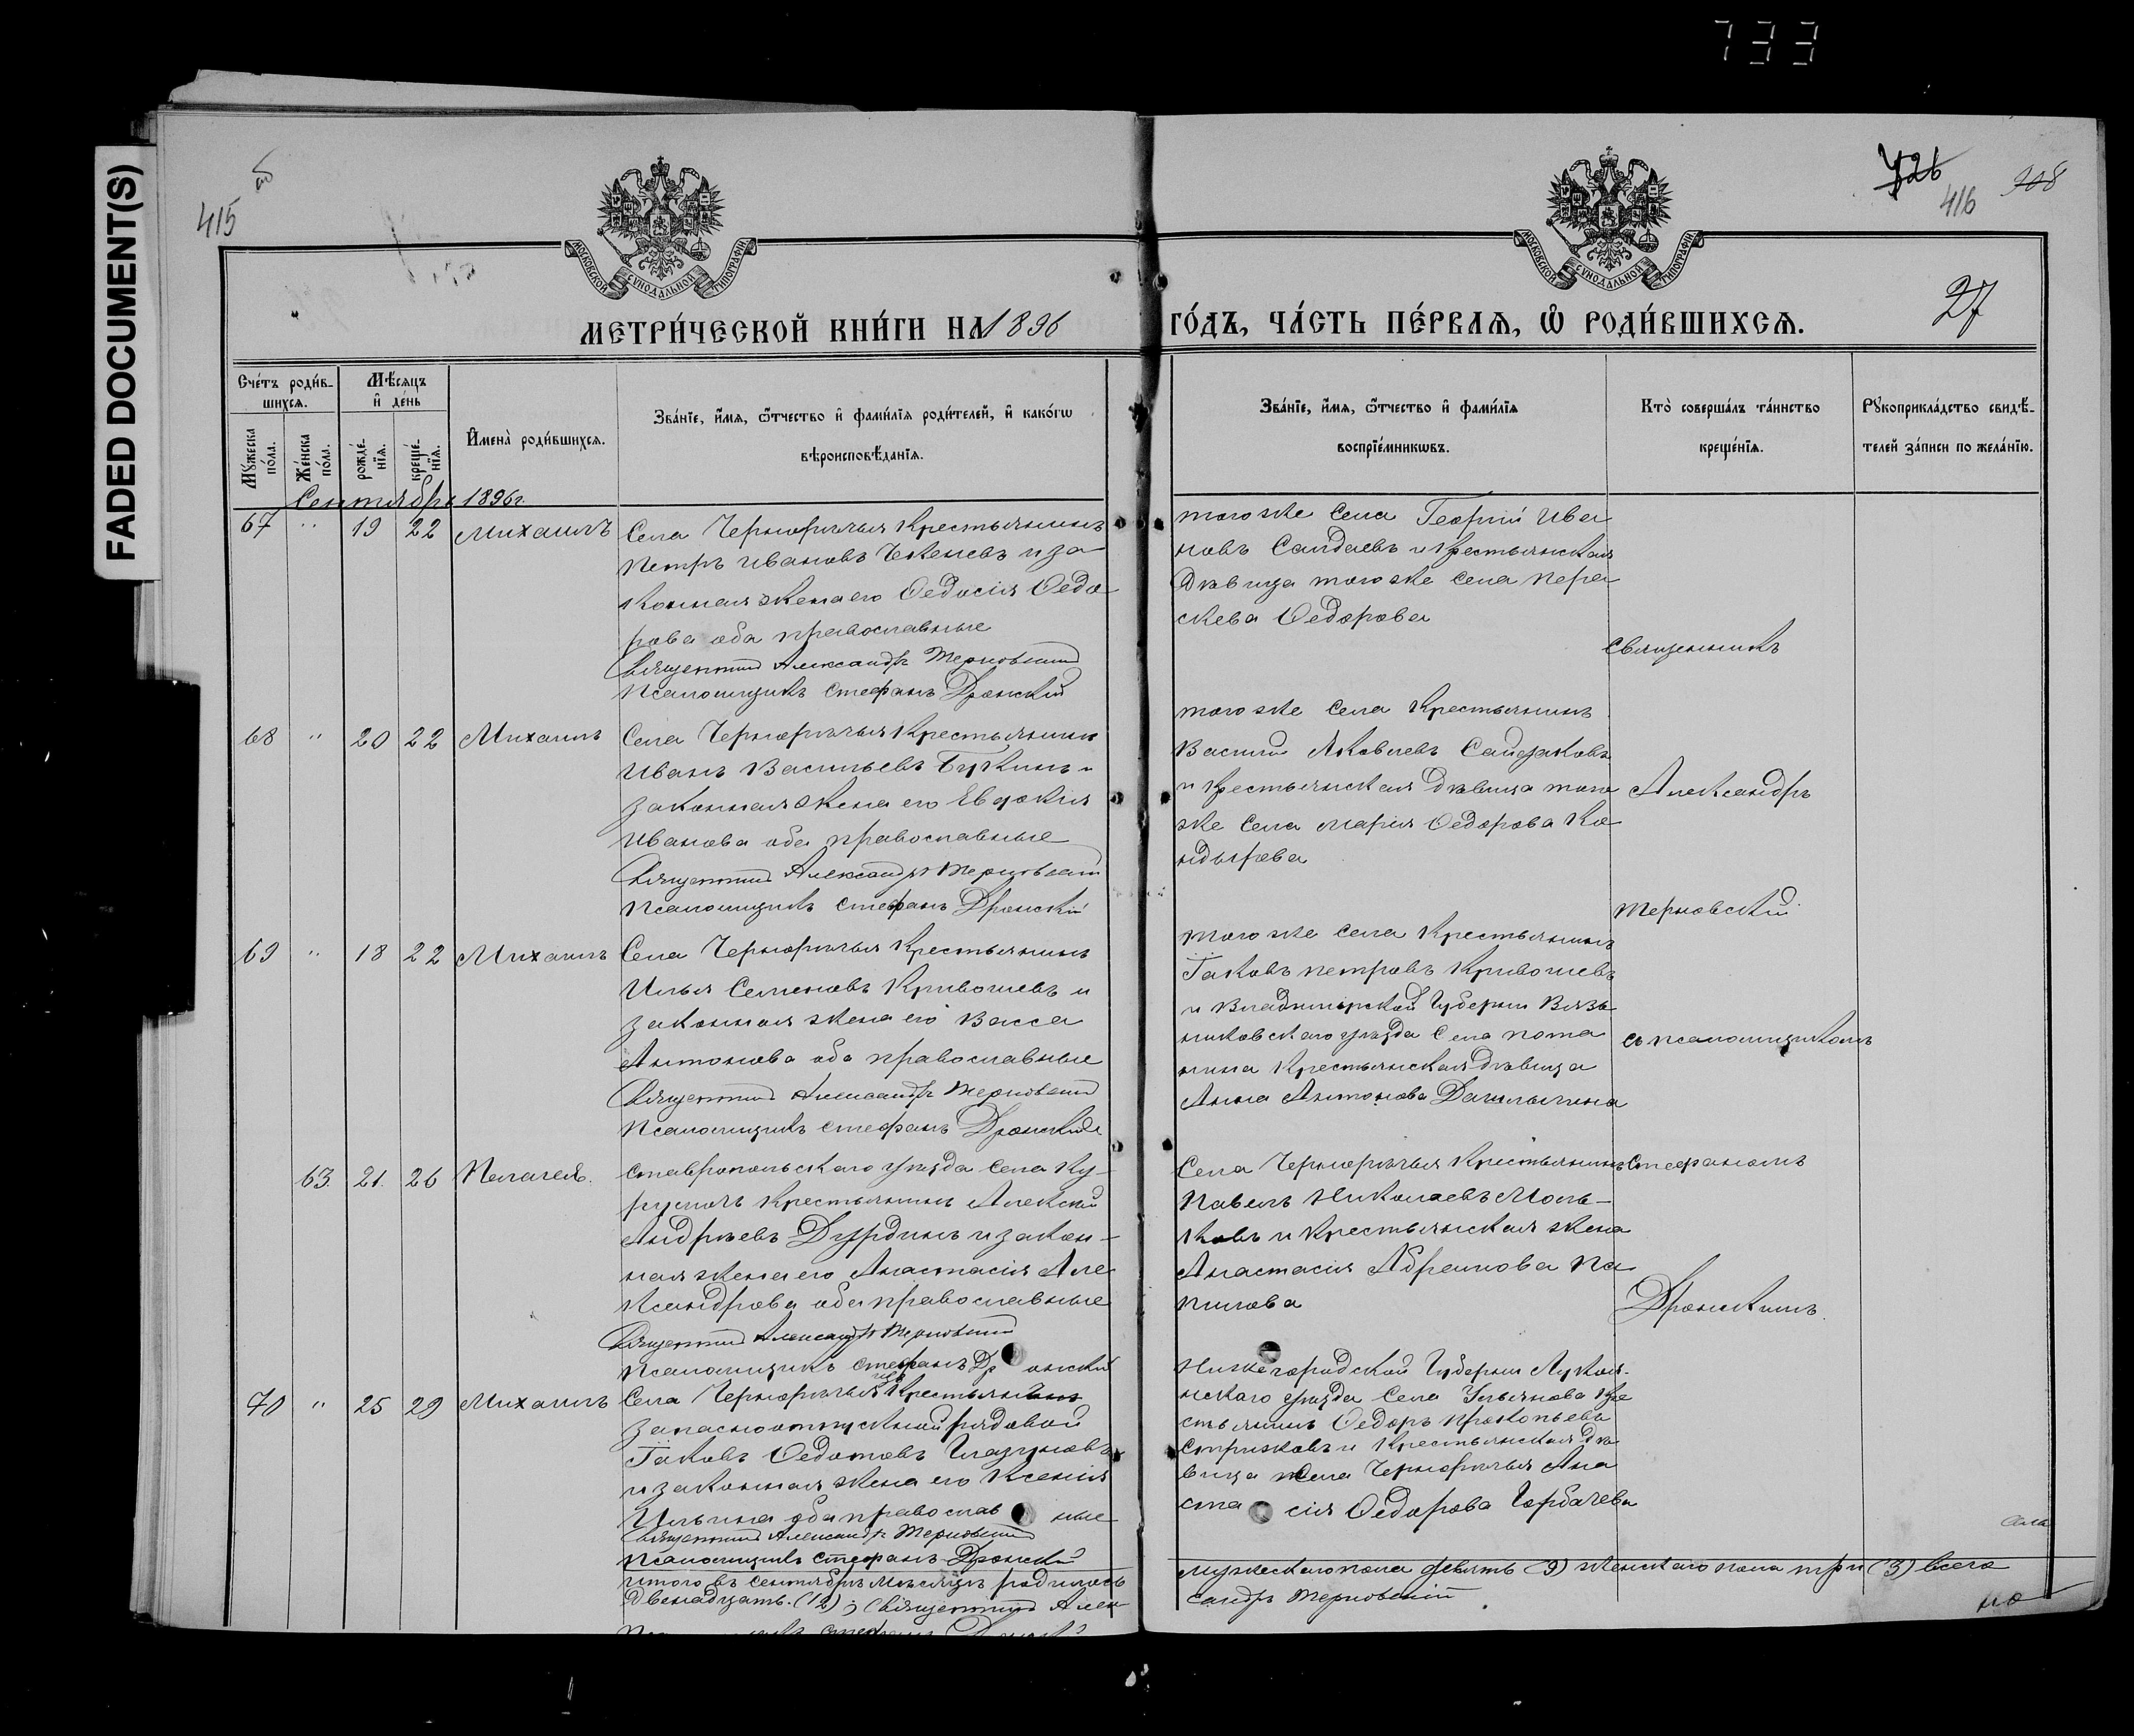 733
FADED DOCUMENT(S)
415
416
308
27
МОСКОВСКОЙ СѴНОДАЛЬНОЙ ТИПОГРАФІИ
МОСКОВСКОЙ СѴНОДАЛЬНОЙ ТИПОГРАФІИ
МЕТРИ́ЧЕСКОЙ КНИ́ГИ НА 1896
ГО́ДЪ, ЧА́СТЬ ПЕ́РВАЯ, Ѽ РОДИ́ВШИХСЯ.
Сче́тъ роди́в-
шихся.
Мѣ́сяцъ
и҆ день
Мꙋ́жеска
по́ла.
Же́нска
по́ла.
рожде́-
нїя.
креще́-
нїя.
И҆мена̀ роди́вшихся.
Зва́нїе, и҆́мя, ѻ҆́тчество и҆ фами́лїя роди́телей, и҆ како́гѡ
вѣроисповѣ́данїя.
Зва́нїе, и҆́мя, ѻ҆́тчество и҆ фами́лїя
воспрїе́мникѡвъ.
Кто̀ соверша́лъ та́инство
креще́нїя.
Рꙋкоприкла́дство свидѣ́-
телей за́писи по жела́нїю.
Сентябрь 1896 г.
67 " 19 22 Михаилъ
Села Чернорѣчья Крестьянинъ
Петръ Ивановъ и за
конная жена его Ѳедосія Ѳедо
рова оба православные
Священникъ Александръ Терновскій
Псаломщикъ Стефанъ Дронскій
того же села Георгій Ива
новъ Саидаевъ и Крестьянская
дѣвица того же села Пера
скева Ѳедорова
Священникъ
68 " 20 22 Михаилъ
Села Чернорѣчья Крестьянинъ
Иванъ Васильевъ Букинъ и
законная жена его Евдокия
Иванова оба православные
Священникъ Александръ Терновскій
Псаломщикъ Стефанъ Дронскій
того же села Крестьянинъ
Василій Яковлевъ
и Крестьянская дѣвица того
же села Марія Ѳедорова Ко
ндырева
Александръ
Терновскій
69 " 18 22 Михаилъ
Села Чернорѣчья Крестьянинъ
Илья Семеновъ Кривошевъ и
законная жена его Васса
Антонова оба православные
Священникъ Александръ Терновскій
Псаломщикъ Стефанъ Дронскій
того же села Крестьянинъ
Іаковъ Петровъ Кривошевъ
и Владимірской Губерніи Вязь
никовскаго уѣзда Села Пота
нина Крестьянская дѣвица
Анна Антонова
съ псаломщикомъ
63. 21. 26 Пелагея.
Ставропольскаго уѣзда Села Ку-
румочь Крестьянинъ Алексѣй
Андрѣевъ Дурдинъ и закон-
ная жена его Анастасія Але
ксандрова оба православные
Священникъ Александръ Терновскій
Псаломщикъ Стефанъ Др онскій
Села Чернорѣчья Крестьянинъ
Павелъ Николаевъ Моль-
ковъ и Крестьянская жена
Анастасія Абрамова Па
нилова
Стефаномъ
Дронскимъ.
70 " 25 29 Михаилъ
Села Чернорѣчья Крестьянинъ
запасноотпускной рядовой
Іаковъ Ѳедотовъ Глазуновъ
и законная жена его Ксенія
Ильина оба православ ные
Священникъ Александръ Терновскій
Псаломщикъ Стефанъ Дронскій
Нижегородской Губерніи Лукоя-
нскаго уѣзда Села Ульянова Кре
стьянинъ Ѳедоръ Прокопьевъ
Стрижковъ и Крестьянская дѣ
вица села Чернорѣчья Ана
ста сія Ѳедорова Горбачева
Итого въ Сентябрѣ мѣсяцѣ родилось
мужескаго пола девять (9) женскаго пола три (3) всего
двенадцать. (12); Священникъ Алек-
сандръ Терновскій